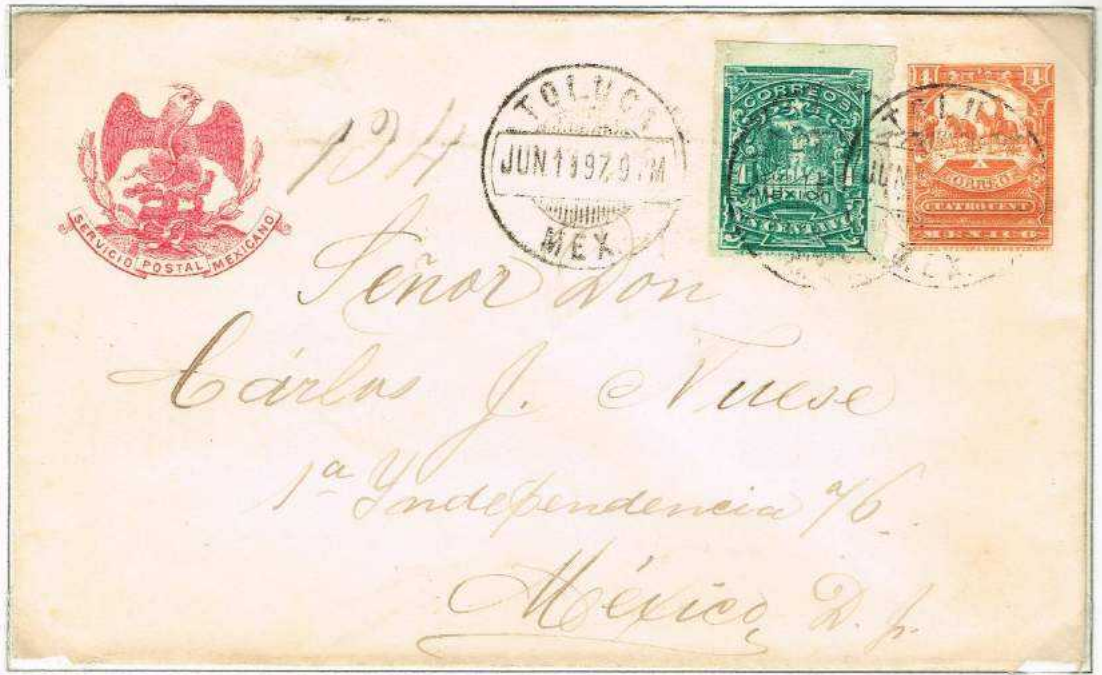 SERVICIO POSTAL MEXICANO
134
TOLUCA
JUN 11 97 9 PM
MEX.
CORREOS
MEXICO
1 UN CENTAVO 1
4 4
CORREOS
CUATRO CENT
MEXICO
JUN
MEX.
Señor Don
Cárlos J. Nuese
1ª Yndependencia
México, D. F.